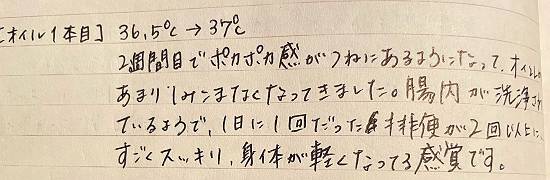 [オイル1本目] 36.5℃→37℃
2週間目でポカポカ感がつねにあるようになって、オイルも
あまりしみこまなくなってきました。腸内が洗浄され
ているようで、1日に1回だった排便が2回以上に、
すごくスッキリ、身体が軽くなってる感覚です。